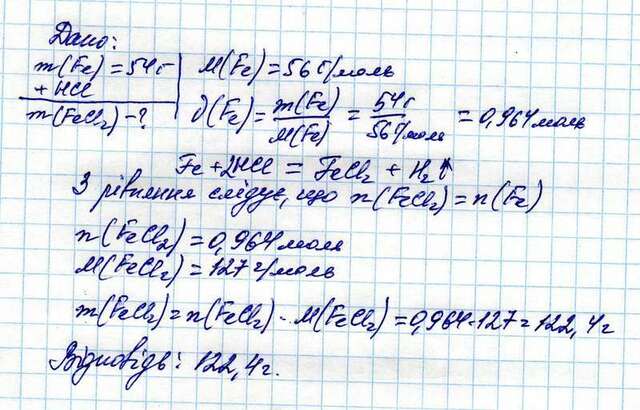 Дано:
m(Fe) = 54г
+ HCl
m(FeCl₂) – ?
M(Fe) = 56 г/моль
υ(Fe) = m(Fe)/M(Fe) = 54г/56г/моль = 0,964 моль
Fe + 2HCl = FeCl₂ + H₂↑
З рівняння слідує, що n(FeCl₂) = n(Fe)
n(FeCl₂) = 0,964 моль
M(FeCl₂) = 127 г/моль
m(FeCl₂) = n(FeCl₂) · M(FeCl₂) = 0,964 · 127 = 122,4г
Відповідь: 122,4г.